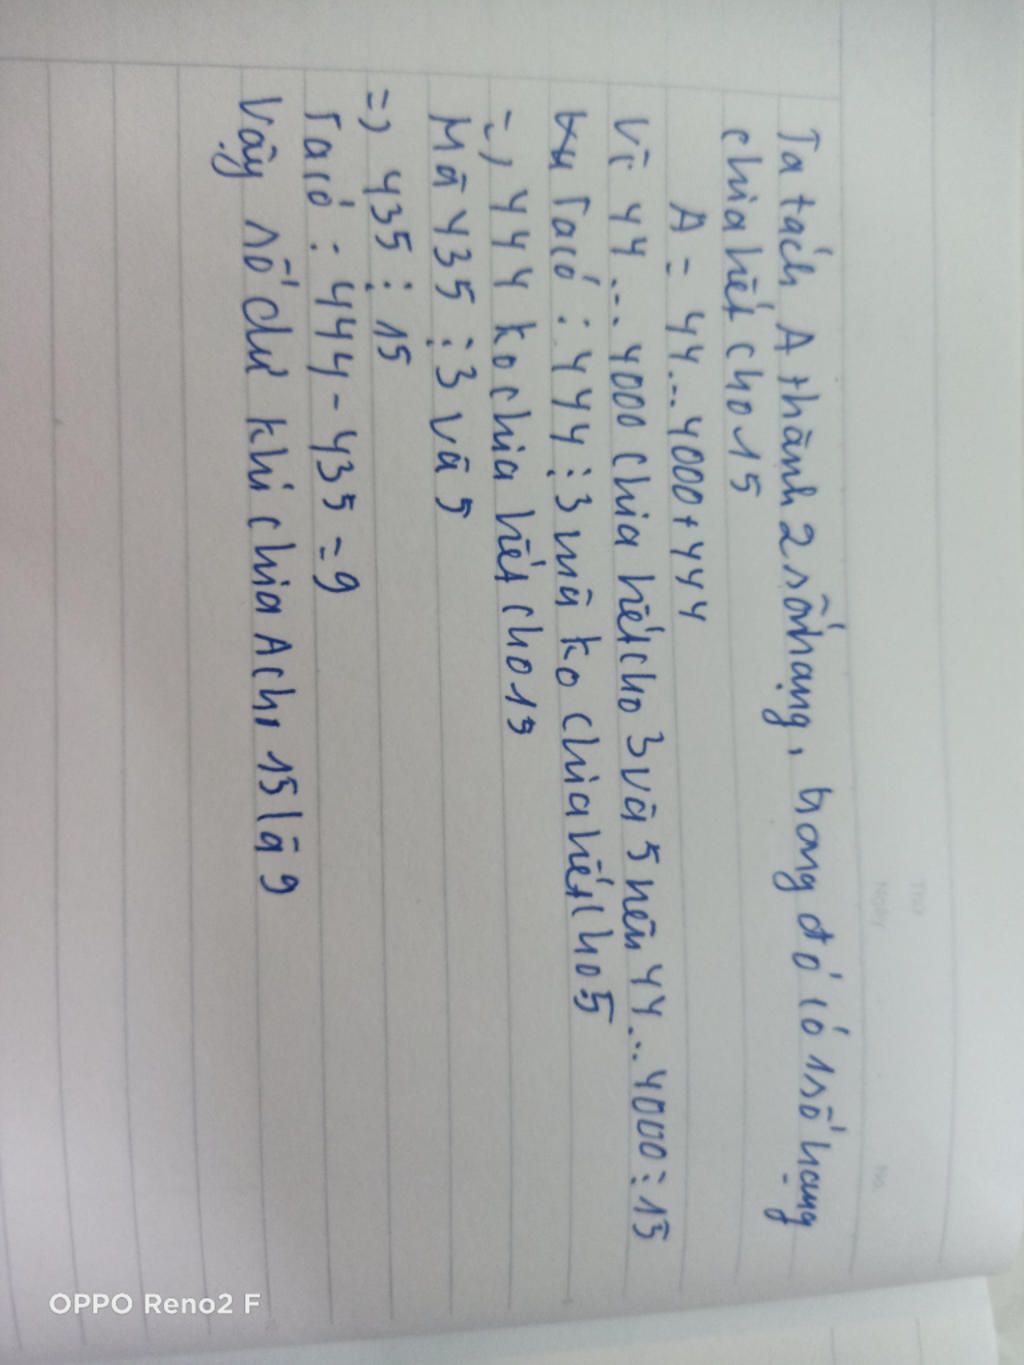 Ta tách A thành 2 số hạng, trong đó có 1 số hạng
chia hết cho 15
A = 44...4000 + 444
Vì 44...4000 chia hết cho 3 và 5 nên 44...4000 ⋮ 15
Ta có : 444 ⋮ 3 mà ko chia hết cho 5
=> 444 ko chia hết cho 15
Mà 435 ⋮ 3 và 5
=> 435 ⋮ 15
Ta có : 444 - 435 = 9
Vậy số dư khi chia A cho 15 là 9
Thứ
Ngày
No.
OPPO Reno2 F